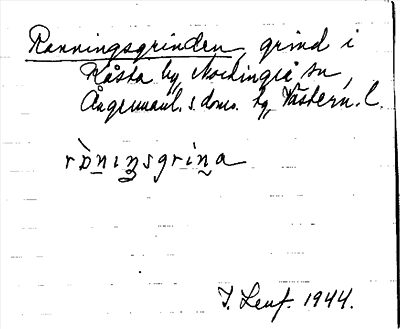 Ranningsgrinden, grind i
Håsta by, Nordingrå sn,
Ångermanl. s. doms. tg, Västern. l.
rɒ̀nɪŋsgrina
J. Leuf. 1944.